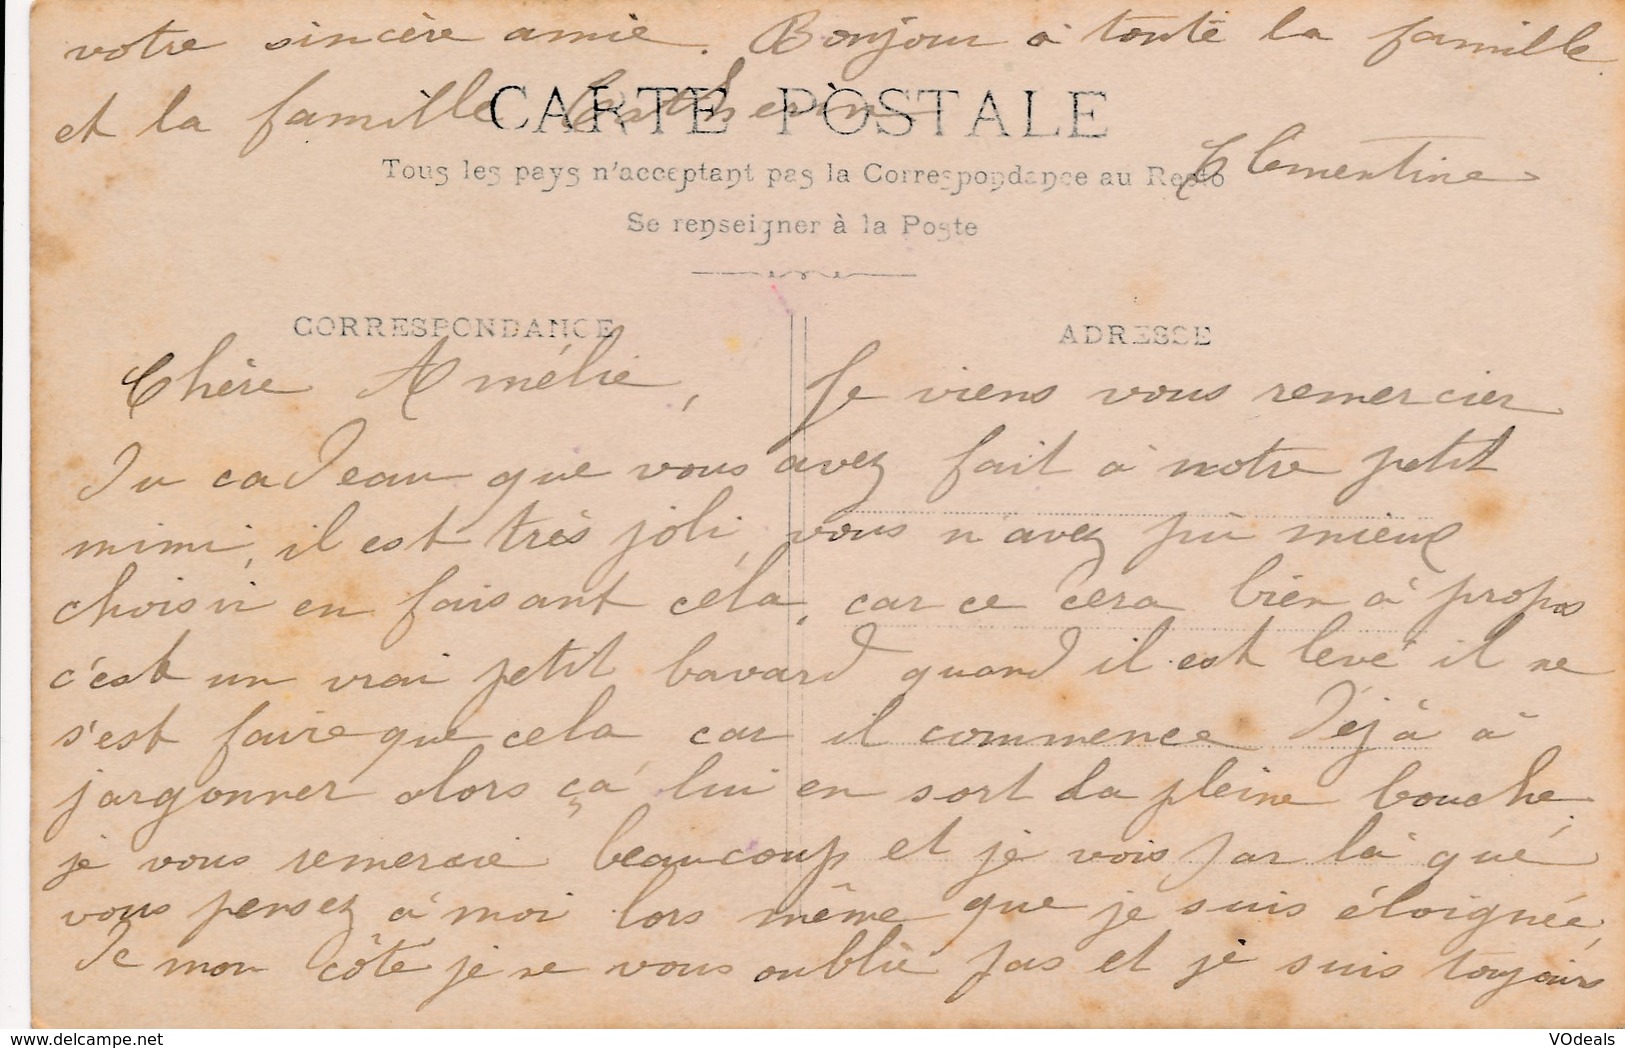 votre sincère amie. Bonjour à toute la famille
et la famille
CARTE POSTALE
Clémentine
Tous les pays n'acceptant pas la Correspondance au Recto
Se renseigner à la Poste
CORRESPONDANCE
ADRESSE
Chère Amélie, Je viens vous remercier
du cadeau que vous avez fait à notre petit
mimi, il est très joli, vous n'avez pû mieux
choisir en faisant céla, car ce cera bien à propos
c'est un vrai petit bavard quand il est levé il ne
s'est faire que cela, car il commence déjà à
jargonner alors ça lui en sort da pleine bouche.
je vous remercie beaucoup et je vois par là que
vous pensez à moi lors même que je suis éloignée,
de mon côté je ne vous oublie pas et je suis toujours
VOdeals